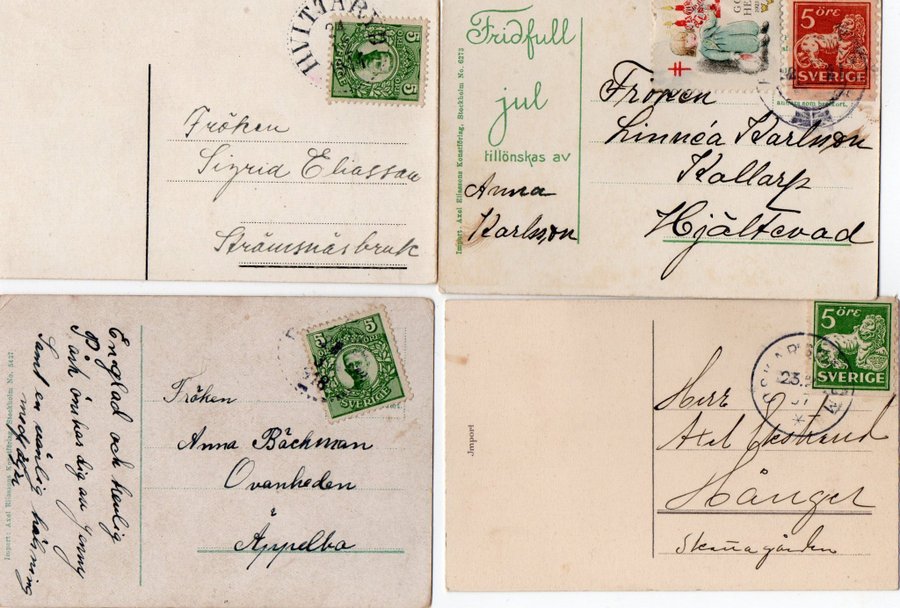 HVITTARYD
SVERIGE
5
5
Fröken
Sigrid Eliasson
Strömsnäsbruk
Fridfull
jul
tillönskas av
Anna
Karlsson
Import: Axel Eliassons Konstförlag, Stockholm No. 6273
GOD
5 ÖRE
SVERIGE
annars som brevkort.
Fröken
Linnéa Karlsson
Kallarp
Hjältevad
Import: Axel Eliassons Konstförlag, Stockholm No. 5427
Englad och
Påsk önskas dig av Jenny
Samt en vänlig hälsning
5
5
SVERIGE
Fröken
Anna Bäckman
Ovanheden
Äppelbo
Import
5 ÖRE
SVERIGE
23
Herr
Axel Ekstrand
Hånger